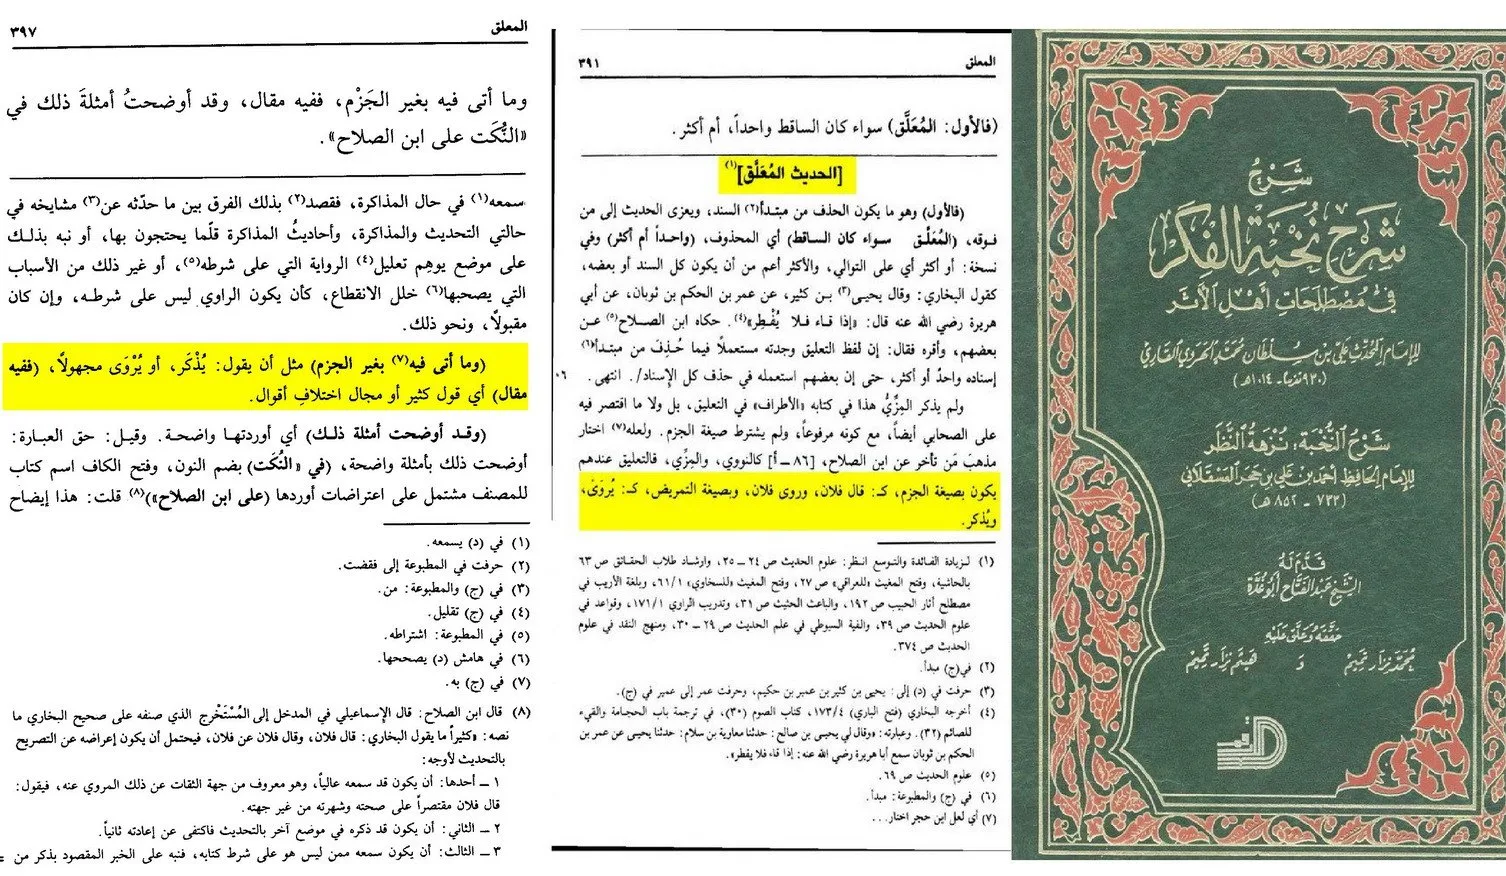 المعلق
٣٩٧
وما أتى فيه بغير الجَزْم، ففيه مقال، وقد أوضحتُ أمثلةَ ذلك في
«النُّكَت على ابن الصلاح».
سمعه(١) في حال المذاكرة، فقصد(٢) بذلك الفرق بين ما حدّثه عن(٣) مشايخه في
حالتي التحديث والمذاكرة، وأحاديثُ المذاكرة قلّما يحتجون بها، أو نبه بذلك
على موضع يوهِم تعليل(٤) الرواية التي على شرطه(٥)، أو غير ذلك من الأسباب
التي يصحبها(٦) خلل الانقطاع، كأن يكون الراوي ليس على شرطه، وإن كان
مقبولاً، ونحو ذلك.
(وما أتى فيه(٧) بغير الجزم) مثل أن يقول: يُذْكَر، أو يُرْوَى مجهولاً، (ففيه
مقال) أي قول كثير أو مجال اختلافِ أقوال.
(وقد أوضحت أمثلة ذلك) أي أوردتها واضحة. وقيل: حق العبارة:
أوضحت ذلك بأمثلة واضحة، (في «النُّكَت) بضم النون، وفتح الكاف اسم كتاب
للمصنف مشتمل على اعتراضات أوردها (على ابن الصلاح»)(٨) قلت: هذا إيضاح
(١) في (د) يسمعه.
(٢) حرفت في المطبوعة إلى فقضت.
(٣) في (ج) والمطبوعة: من.
(٤) في (ج) تقليل.
(٥) في المطبوعة: اشتراطه.
(٦) في هامش (د) يصححها.
(٧) في (ج) به.
(٨) قال ابن الصلاح: قال الإسماعيلي في المدخل إلى المُسْتَخْرج الذي صنفه على صحيح البخاري ما
نصه: «كثيراً ما يقول البخاري: قال فلان، وقال فلان عن فلان، فيحتمل أن يكون إعراضه عن التصريح
بالتحديث لأوجه:
١ ــ أحدها: أن يكون قد سمعه عالياً، وهو معروف من جهة الثقات عن ذلك المروي عنه، فيقول:
قال فلان مقتصراً على صحته وشهرته من غير جهته.
٢ ــ الثاني: أن يكون قد ذكره في موضع آخر بالتحديث فاكتفى عن إعادته ثانياً.
٣ ــ الثالث: أن يكون سمعه ممن ليس هو على شرط كتابه، فنبه على الخبر المقصود بذكر من =
المعلق
٣٩١
(فالأول: المُعَلَّق) سواء كان الساقط واحداً، أم أكثر.
[الحديث المُعَلَّق](١)
(فالأول) وهو ما يكون الحذف من مبتدأ(٢) السند، ويعزى الحديث إلى من
فوقه، (المُعَلَّق سواء كان الساقط) أي المحذوف، (واحداً أم أكثر) وفي
نسخة: أو أكثر أي على التوالي، والأكثر أعم من أن يكون كل السند أو بعضه،
كقول البخاري: وقال يحيى(٣) بن كثير، عن عمر بن الحكم بن ثوبان، عن أبي
هريرة رضي الله عنه قال: «إذا قاء فلا يُفْطِر»(٤). حكاه ابن الصلاح(٥) عن
بعضهم، وأقره فقال: إن لفظ التعليق وجدته مستعملاً فيما حُذِف من مبتدأ(٦)
إسناده واحدٌ أو أكثر، حتى إن بعضهم استعمله في حذف كل الإسناد/. انتهى. ٠٦
ولم يذكر المِزِّيُّ هذا في كتابه «الأطراف» في التعليق، بل ولا ما اقتصر فيه
على الصحابي أيضاً، مع كونه مرفوعاً، ولم يشترط صيغة الجزم. ولعله(٧) اختار
مذهبَ مَن تأخر عن ابن الصلاح، [٨٦ ــ أ] كالنووي، والمِزِّي، فالتعليق عندهم
يكون بصيغة الجزم، كـ: قال فلان، وروى فلان، وبصيغة التمريض، كـ: يُروَى،
ويُذكر.
(١) لزيادة الفائدة والتوسع انظر: علوم الحديث ص ٢٤ ــ ٢٥، وارشاد طلاب الحقائق ص ٦٣
بالحاشية، وفتح المغيث «للعراقي» ص ٢٧، وفتح المغيث «للسخاوي» ٦١/١، وبلغة الأريب في
مصطلح آثار الحبيب ص ١٩٢، والباعث الحثيث ص ٣١، وتدريب الراوي ١٧١/١، وقواعد في
علوم الحديث ص ٣٩، والفية السيوطي في علم الحديث ص ٢٩ ــ ٣٠، ومنهج النقد في علوم
الحديث ص ٣٧٤.
(٢) في(ج) مبدأ.
(٣) حرفت في (د) إلى: يحيى بن كثير بن عمير بن حكيم، وحرفت عمر إلى عمير في (ج).
(٤) أخرجه البخاري (فتح الباري) ١٧٣/٤، كتاب الصوم (٣٠)، في ترجمة باب الحجامة والقيء
للصائم (٣٢). وعبارته: «وقال لي يحيى بن صالح: حدثنا معاوية بن سلام: حدثنا يحيى عن عمر بن
الحكم بن ثوبان سمع أبا هريرة رضي الله عنه: إذا قاء فلا يفطر».
(٥) علوم الحديث ص ٦٩.
(٦) في (ج) والمطبوعة: مبدأ.
(٧) أي لعل ابن حجر اختار...
شَرْحُ
شَرْحِ نُخْبَةِ الفِكَرِ
فِي مُصْطَلَحَاتِ أَهْلِ الأَثَرِ
للإمام المحدّث علي بن سلطان محمد الهروي القاري
(٩٣٠ تقريبا ـ ١٠١٤ هـ)
شَرْحُ النُّخْبَةِ: نُزْهَةُ النَّظَرِ
للإمام الحافظ أحمد بن علي بن حجر العسقلاني
(٧٧٣ - ٨٥٢ هـ)
قَدَّمَ لَهُ
الشيخ عبد الفتاح أبو غدة
حققه وعلق عليه
محمد نزار تميم و هيثم نزار تميم